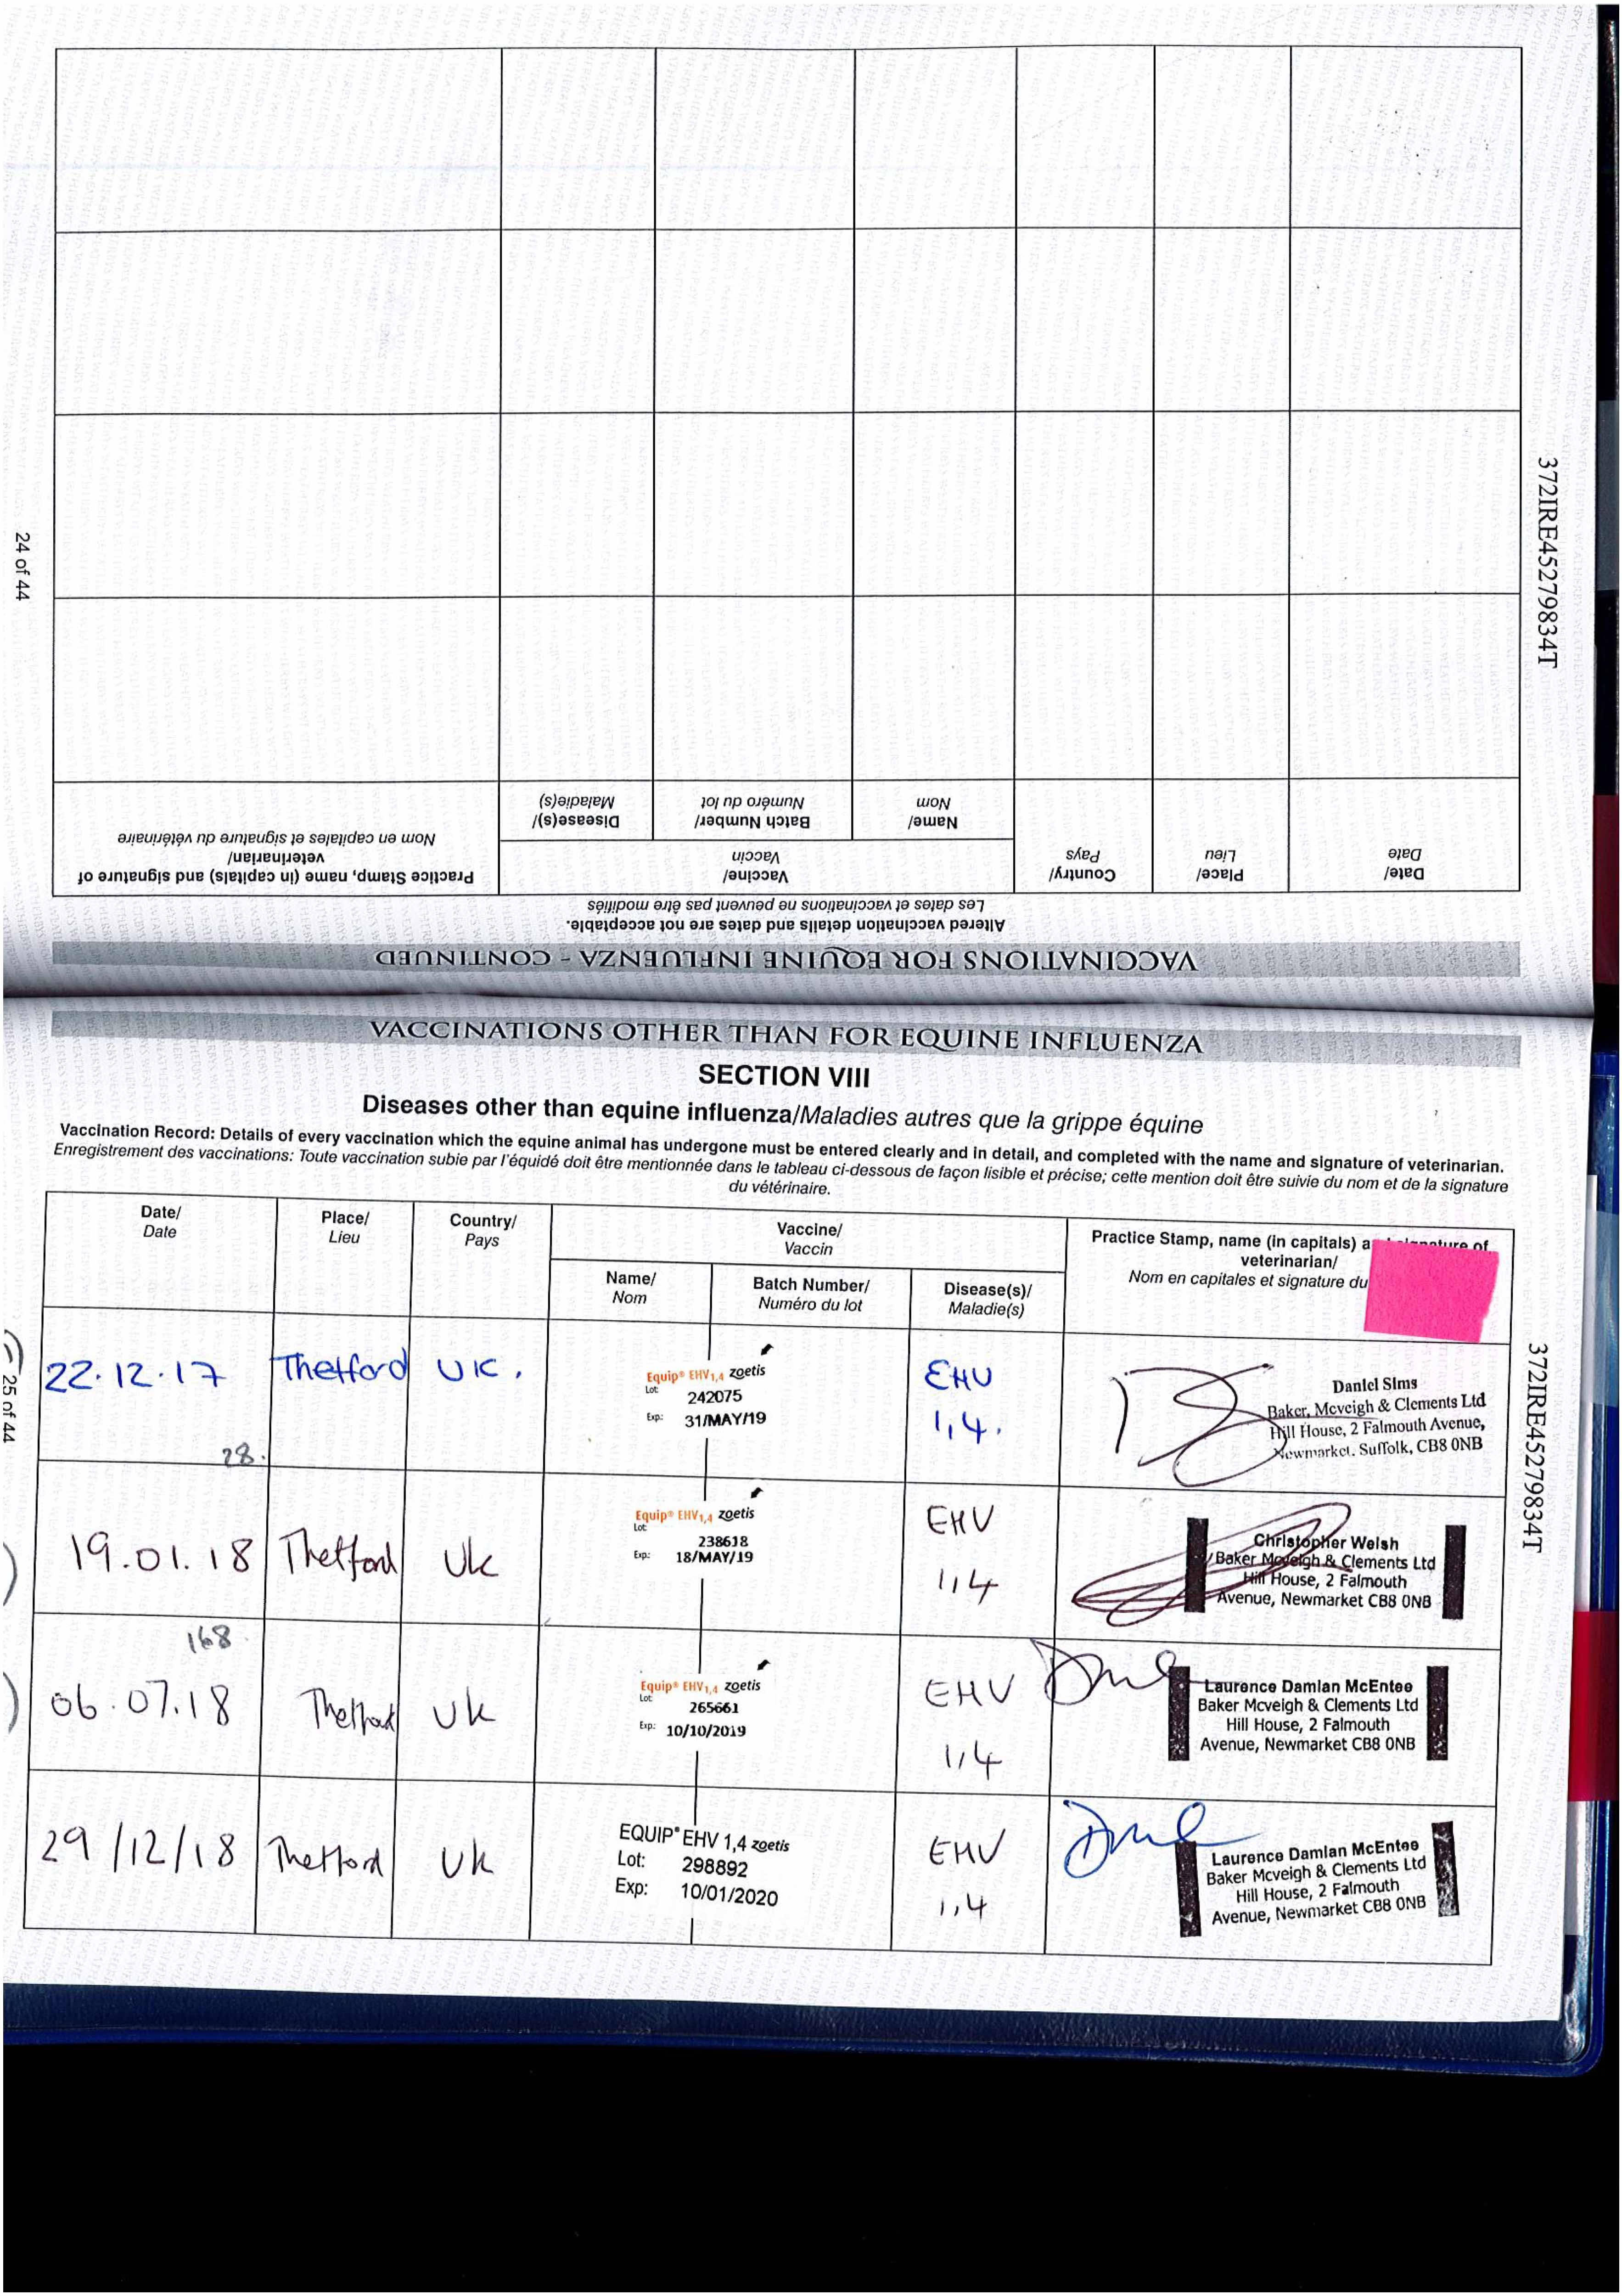 VACCINATIONS FOR EQUINE INFLUENZA - CONTINUED
Altered vaccination details and dates are not acceptable.
Les dates et vaccinations ne peuvent pas être modifiés
Date/
Date
Place/
Lieu
Country/
Pays
Vaccine/
Vaccin
Name/
Nom
Batch Number/
Numéro du lot
Disease(s)/
Maladie(s)
Practice Stamp, name (in capitals) and signature of
veterinarian/
Nom en capitales et signature du vétérinaire
372IRE45279834T
24 of 44
VACCINATIONS OTHER THAN FOR EQUINE INFLUENZA
SECTION VIII
Diseases other than equine influenza/Maladies autres que la grippe équine
Vaccination Record: Details of every vaccination which the equine animal has undergone must be entered clearly and in detail, and completed with the name and signature of veterinarian.
Enregistrement des vaccinations: Toute vaccination subie par l'équidé doit être mentionnée dans le tableau ci-dessous de façon lisible et précise; cette mention doit être suivie du nom et de la signature
du vétérinaire.
Date/
Date
Place/
Lieu
Country/
Pays
Vaccine/
Vaccin
Name/
Nom
Batch Number/
Numéro du lot
Disease(s)/
Maladie(s)
Practice Stamp, name (in capitals) signature of
veterinarian/
Nom en capitales et signature du
22.12.17 Thetford UK.
Equip® EHV1,4 zoetis
Lot: 242075
Exp: 31/MAY/19
EHV
1,4.
Daniel Sims
Baker, Mcveigh & Clements Ltd
Hill House, 2 Falmouth Avenue,
Newmarket. Suffolk, CB8 0NB
28.
19.01.18 Thetford Uk
Equip® EHV1,4 zoetis
Lot: 238618
Exp: 18/MAY/19
EHV
1,4
Christopher Welsh
Baker Mcveigh & Clements Ltd
Hill House, 2 Falmouth
Avenue, Newmarket CB8 0NB
168
06.07.18 Thetford Uk
Equip® EHV1,4 zoetis
Lot: 265661
Exp: 10/10/2019
EHV
1,4
Laurence Damian McEntee
Baker Mcveigh & Clements Ltd
Hill House, 2 Falmouth
Avenue, Newmarket CB8 0NB
29/12/18 Thetford Uk
EQUIP® EHV 1,4 zoetis
Lot: 298892
Exp: 10/01/2020
EHV
1,4
Laurence Damian McEntee
Baker Mcveigh & Clements Ltd
Hill House, 2 Falmouth
Avenue, Newmarket CB8 0NB
372IRE45279834T
25 of 44